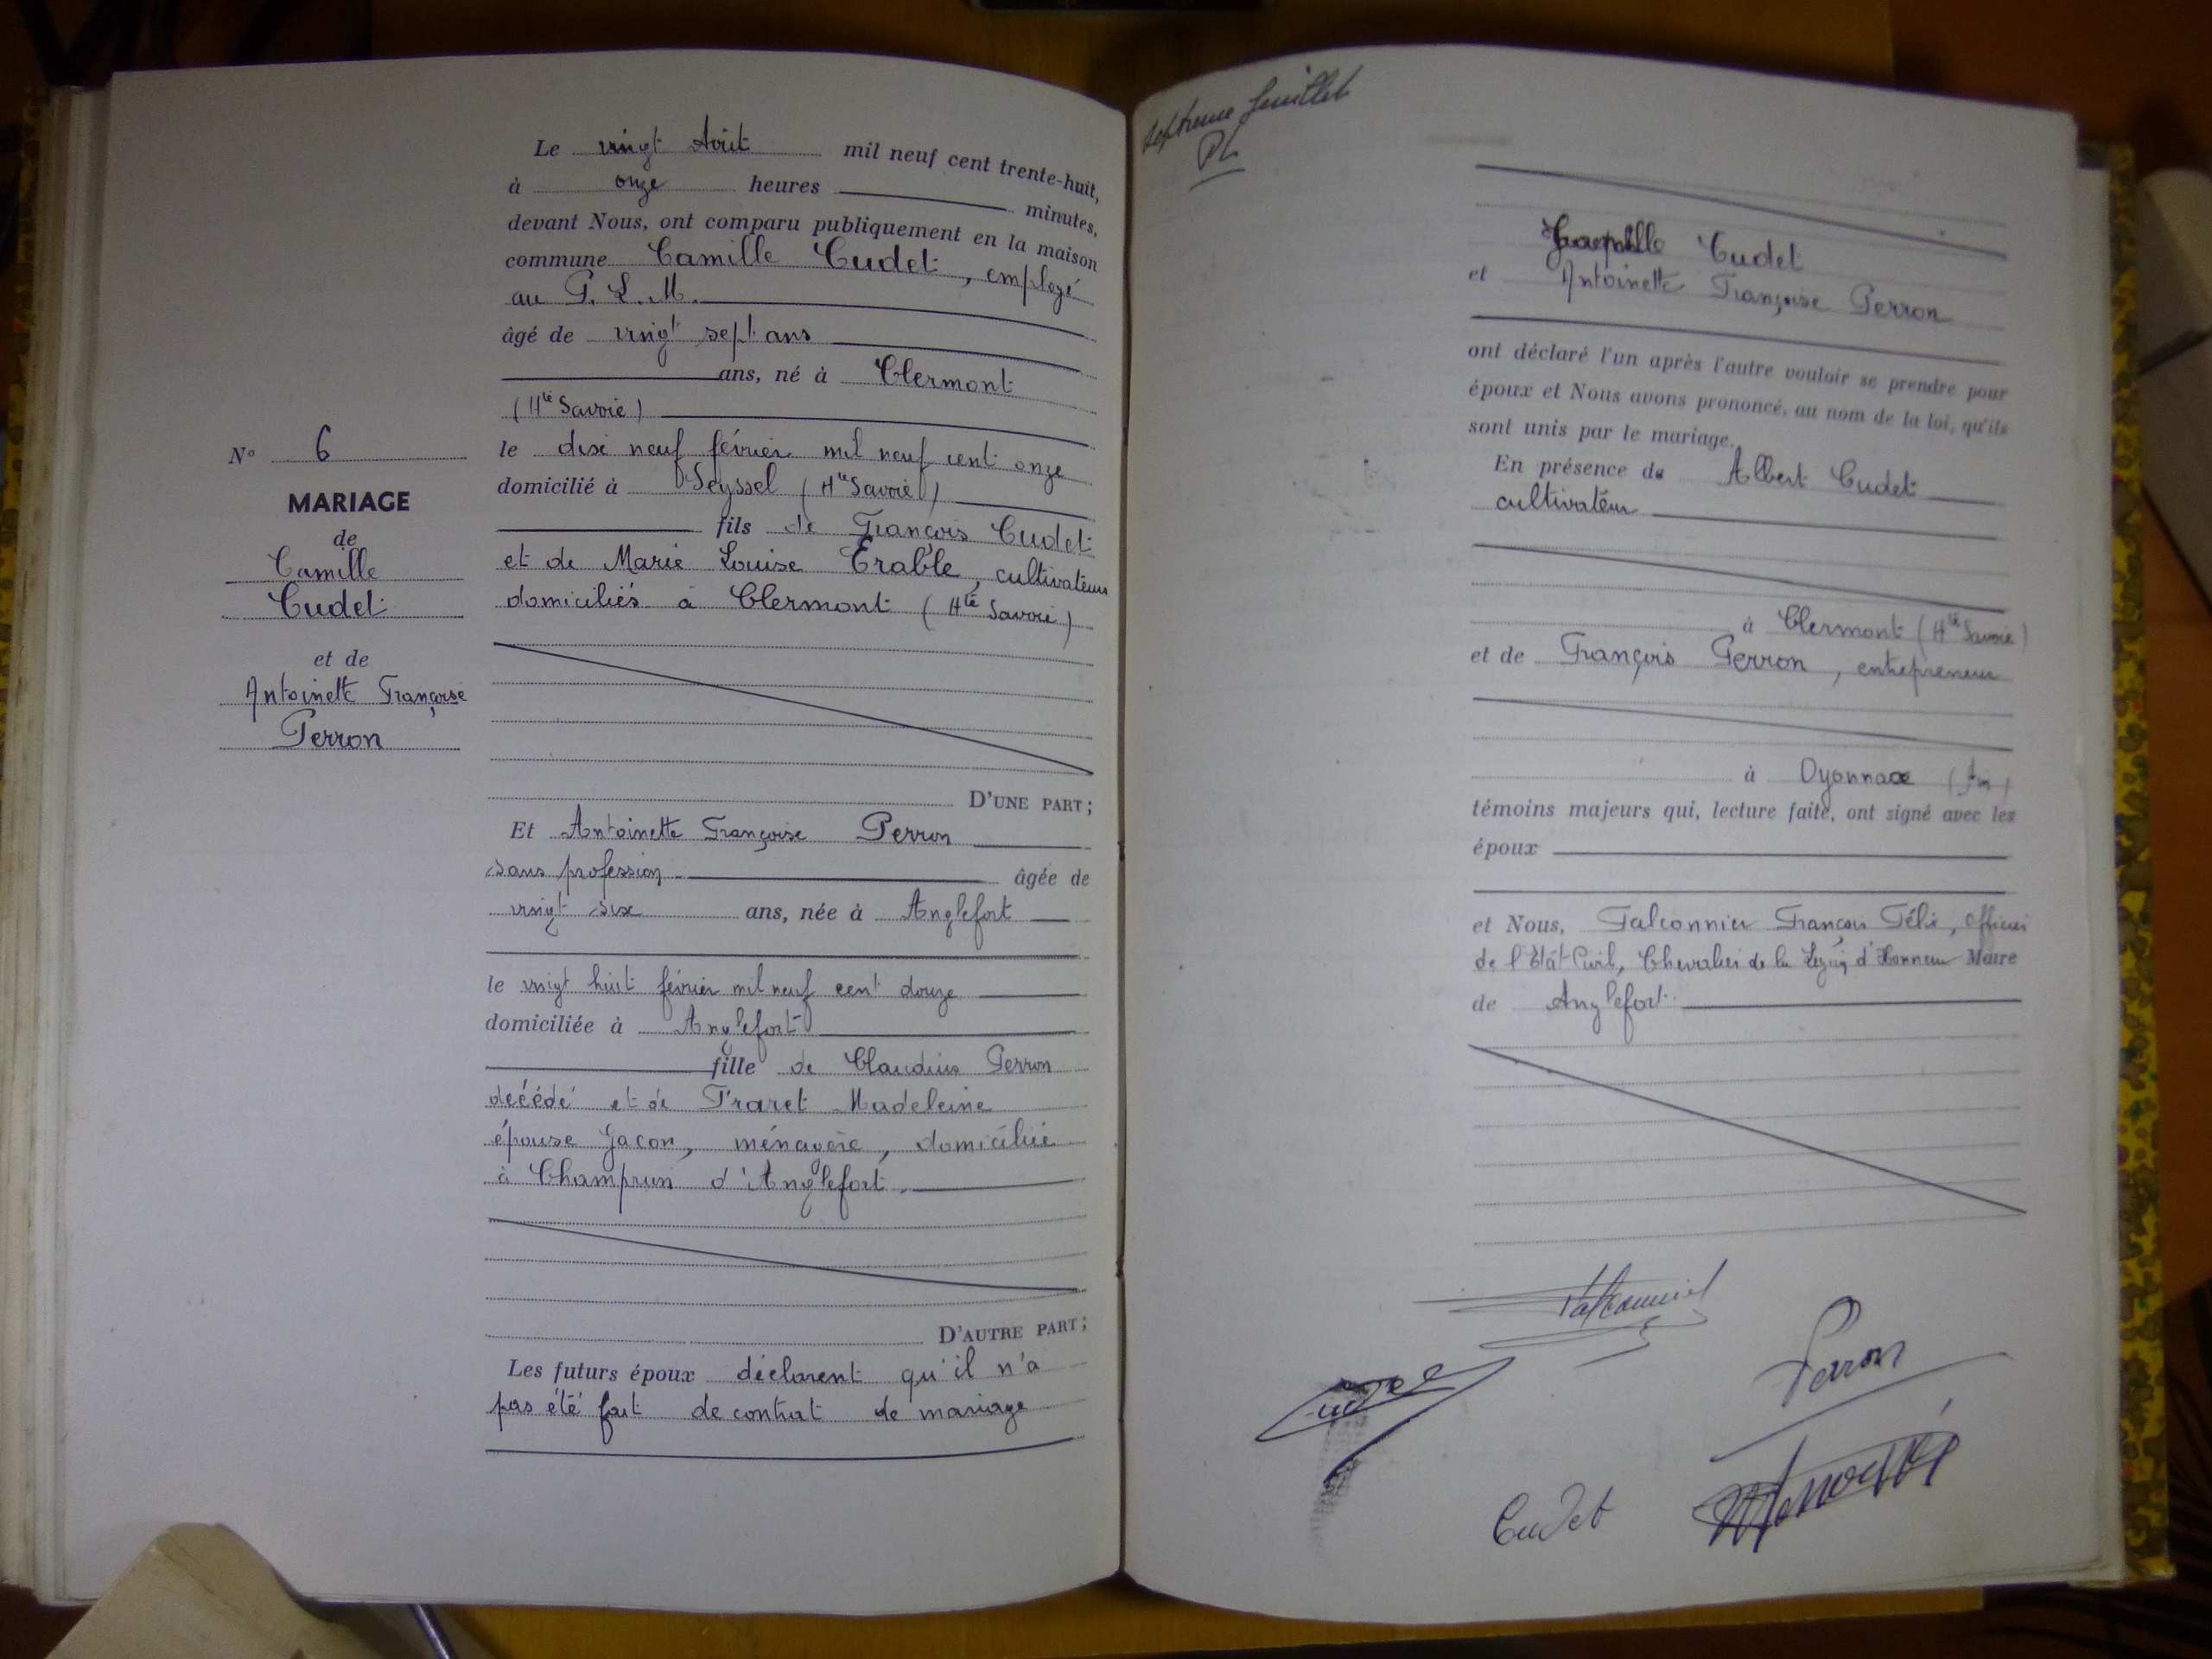 N° 6
MARIAGE
de
Camille
Cudet
et de
Antoinette Françoise
Perron
Le vingt Août mil neuf cent trente-huit,
à onze heures minutes,
devant Nous, ont comparu publiquement en la maison
commune Camille Cudet, employé
au P. L. M.
âgé de vingt sept ans
ans, né à Clermont
(Hte Savoie)
le dix neuf février mil neuf cent onze
domicilié à Seyssel (Hte Savoie)
fils de François Cudet
et de Marie Louise Erable, cultivateurs
domiciliés à Clermont (Hte Savoie)
D'UNE PART;
Et Antoinette Françoise Perron
sans profession âgée de
vingt six ans, née à Anglefort
le vingt huit février mil neuf cent douze
domiciliée à Anglefort
fille de Claudius Perron
décédé et de Praret Madeleine
épouse Jacon, ménagère, domiciliée
à Champrun d'Anglefort.
D'AUTRE PART;
Les futurs époux déclarent qu'il n'a
pas été fait de contrat de mariage
septième feuillet
Cudet
et Antoinette Françoise Perron
ont déclaré l'un après l'autre vouloir se prendre pour
époux et Nous avons prononcé, au nom de la loi, qu'ils
sont unis par le mariage.
En présence de Albert Cudet
cultivateur
à Clermont (Hte Savoie)
et de François Perron, entrepreneur
à Oyonnax (Ain)
témoins majeurs qui, lecture faite, ont signé avec les
époux
et Nous, Falconnier François Félix, Officier
de l'Etat Civil, Chevalier de la Légion d'Honneur Maire
de Anglefort.
Falconnier
Perron
Cudet